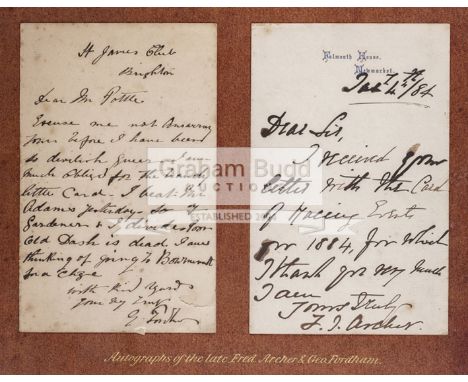 St James Club
Brighton
Dear Mr Pottle
Excuse me not answering
yours before I have been
so devilish queer I am
much obliged for the
little Card. I beat the
Adams yesterday
Gardener & I
Old Dash is dead, I am
thinking of going to Bournemouth
for a
with kind regards
yours very truly
G Fordham
Falmouth House,
Newmarket.
84
Dear Sir,
I received your
letter with the Card
of Racing Events
for 1884, for which
I thank you very much
I am
Yours truly
F. J. Archer.
Graham Budd
AUCTIONS
ESTABLISHED
Autographs of the late Fred. Archer & Geo. Fordham.